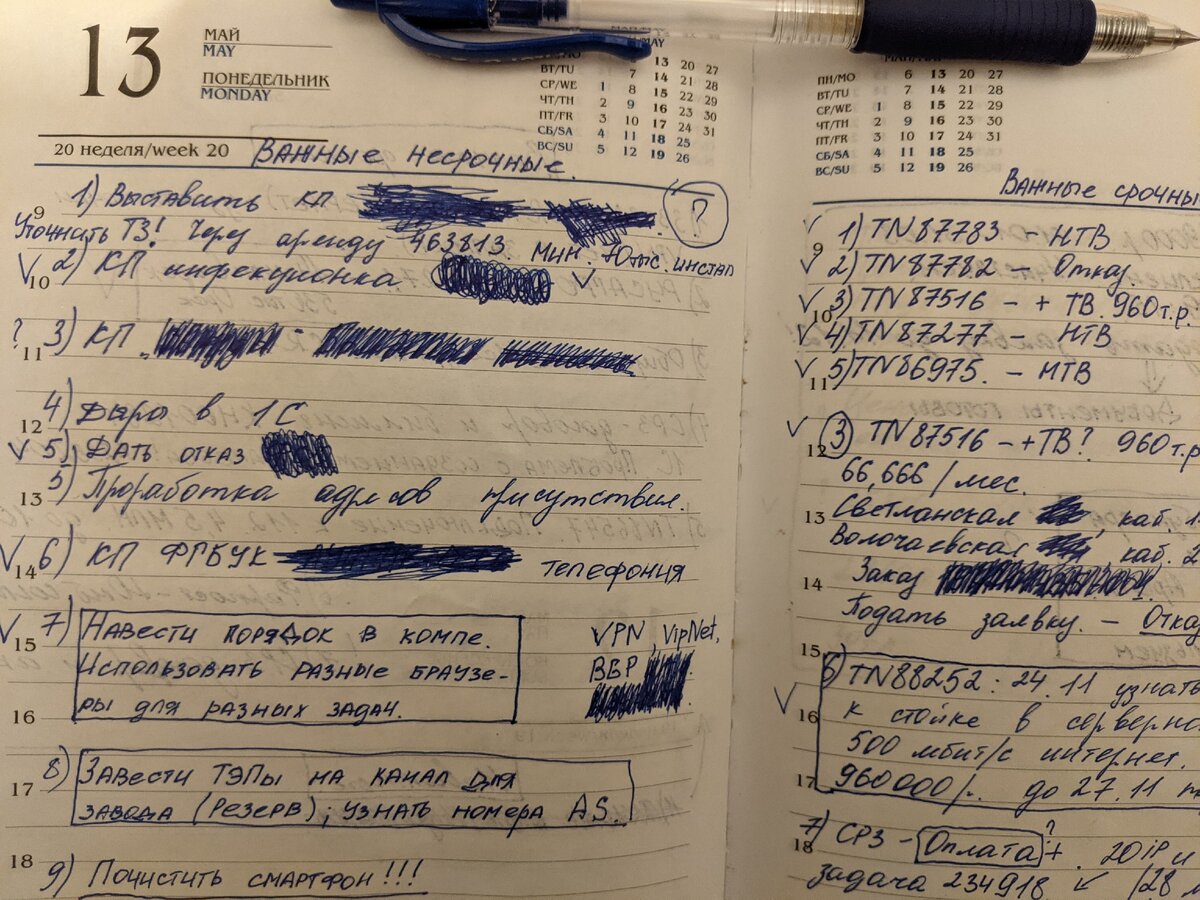 13
МАЙ
MAY
ПОНЕДЕЛЬНИК
MONDAY
13 20 27
ВТ/TU 7 14 21 28
СР/WE 1 8 15 22 29
ЧТ/TH 2 9 16 23 30
ПТ/FR 3 10 17 24 31
СБ/SA 4 11 18 25
ВС/SU 5 12 19 26
20 неделя/week 20
Важные несрочные.
1) Выставить КП ?
9
Уточнить ТЗ! Через аренду 463813. мин. 70тыс. инстал
√ 2) КП инфекционка √
10
? 3) КП
11
4) Дыра в 1С
12
√ 5) Дать отказ
5) Проработка адресов присутствия.
13
√ 6) КП ФГБУК телефония
14
√ 7) Навести порядок в компе.
15
Использовать разные браузе-
ры для разных задач.
16
VPN, VipNet,
ВБР
8) Завести ТЭПы на канал для
17
завода (резерв); узнать номера AS.
18
9) Почистить смартфон!!!
ПН/MO 6 13 20 27
ВТ/TU 7 14 21 28
СР/WE 1 8 15 22 29
ЧТ/TH 2 9 16 23 30
ПТ/FR 3 10 17 24 31
СБ/SA 4 11 18 25
ВС/SU 5 12 19 26
Важные срочны
√ 1) TN87783 – НТВ
9
√ 2) TN87782 – Отказ.
√ 3) TN87516 – + ТВ. 960т.р.
10
√ 4) TN87277 – НТВ
√ 5) TN86975. – НТВ
11
√ 3 TN87516 – +ТВ? 960т.р
12
66,666/мес.
13
Светланская каб. 1
Волочаевская каб. 2
14
Заказ
Подать заявку. – Отказ
15
√ 6) TN88252: 24.11 узнать
16
к стойке в серверно
500 мбит/с интернет.
17
960000р. до 27.11
7) СРЗ – Оплата ? + 20 IP и
18
задача 234918 ↙ /28